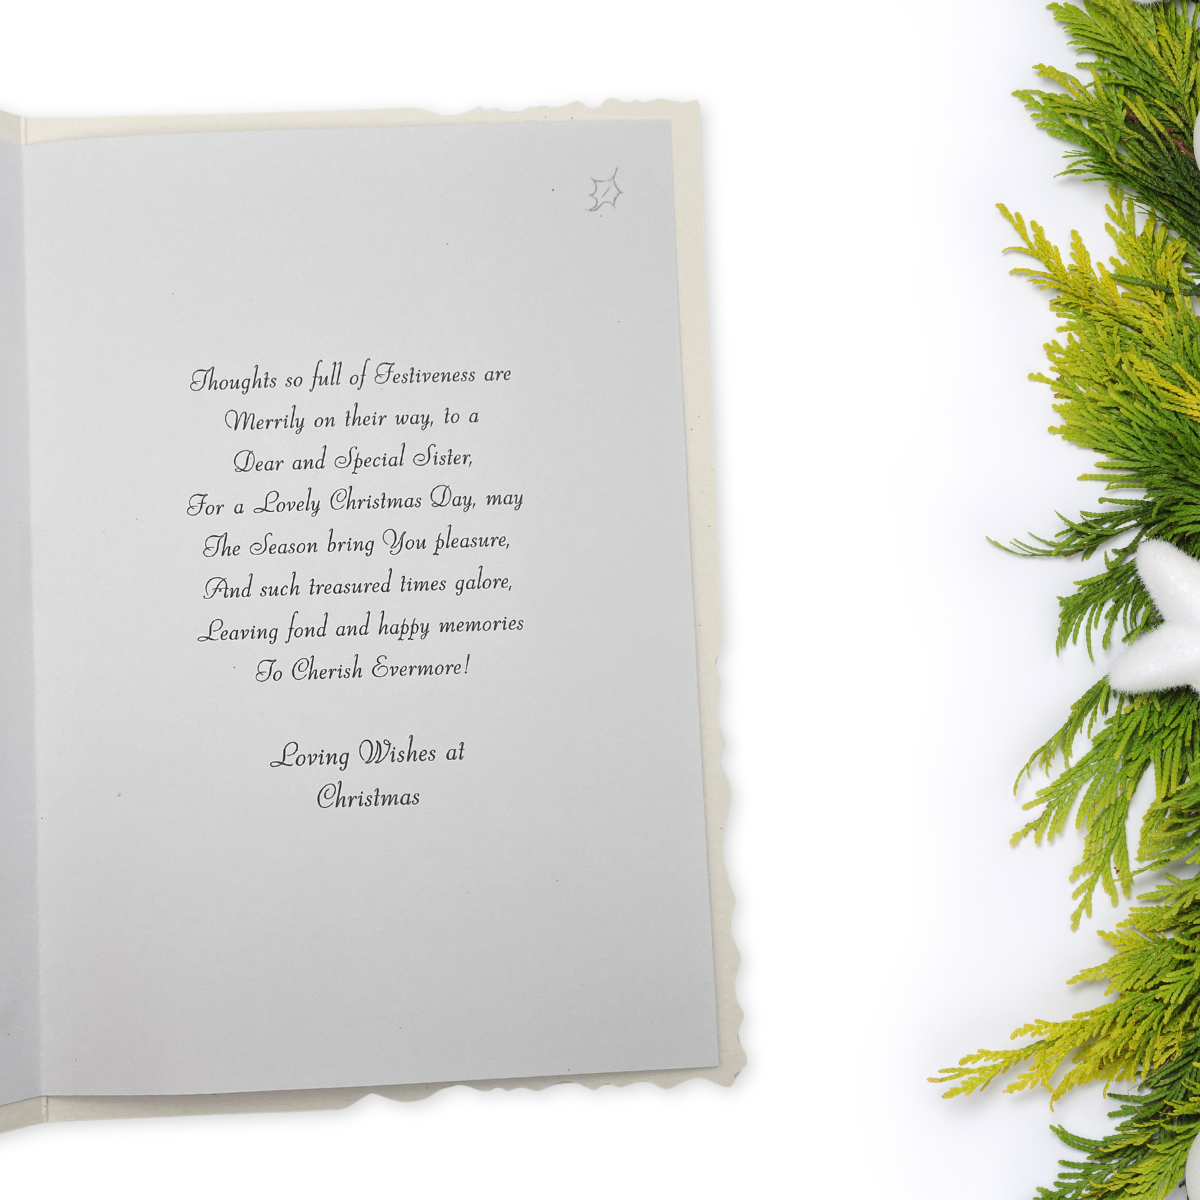 Thoughts so full of Festiveness are
Merrily on their way, to a
Dear and Special Sister,
For a Lovely Christmas Day, may
The Season bring You pleasure,
And such treasured times galore,
Leaving fond and happy memories
To Cherish Evermore!
Loving Wishes at
Christmas